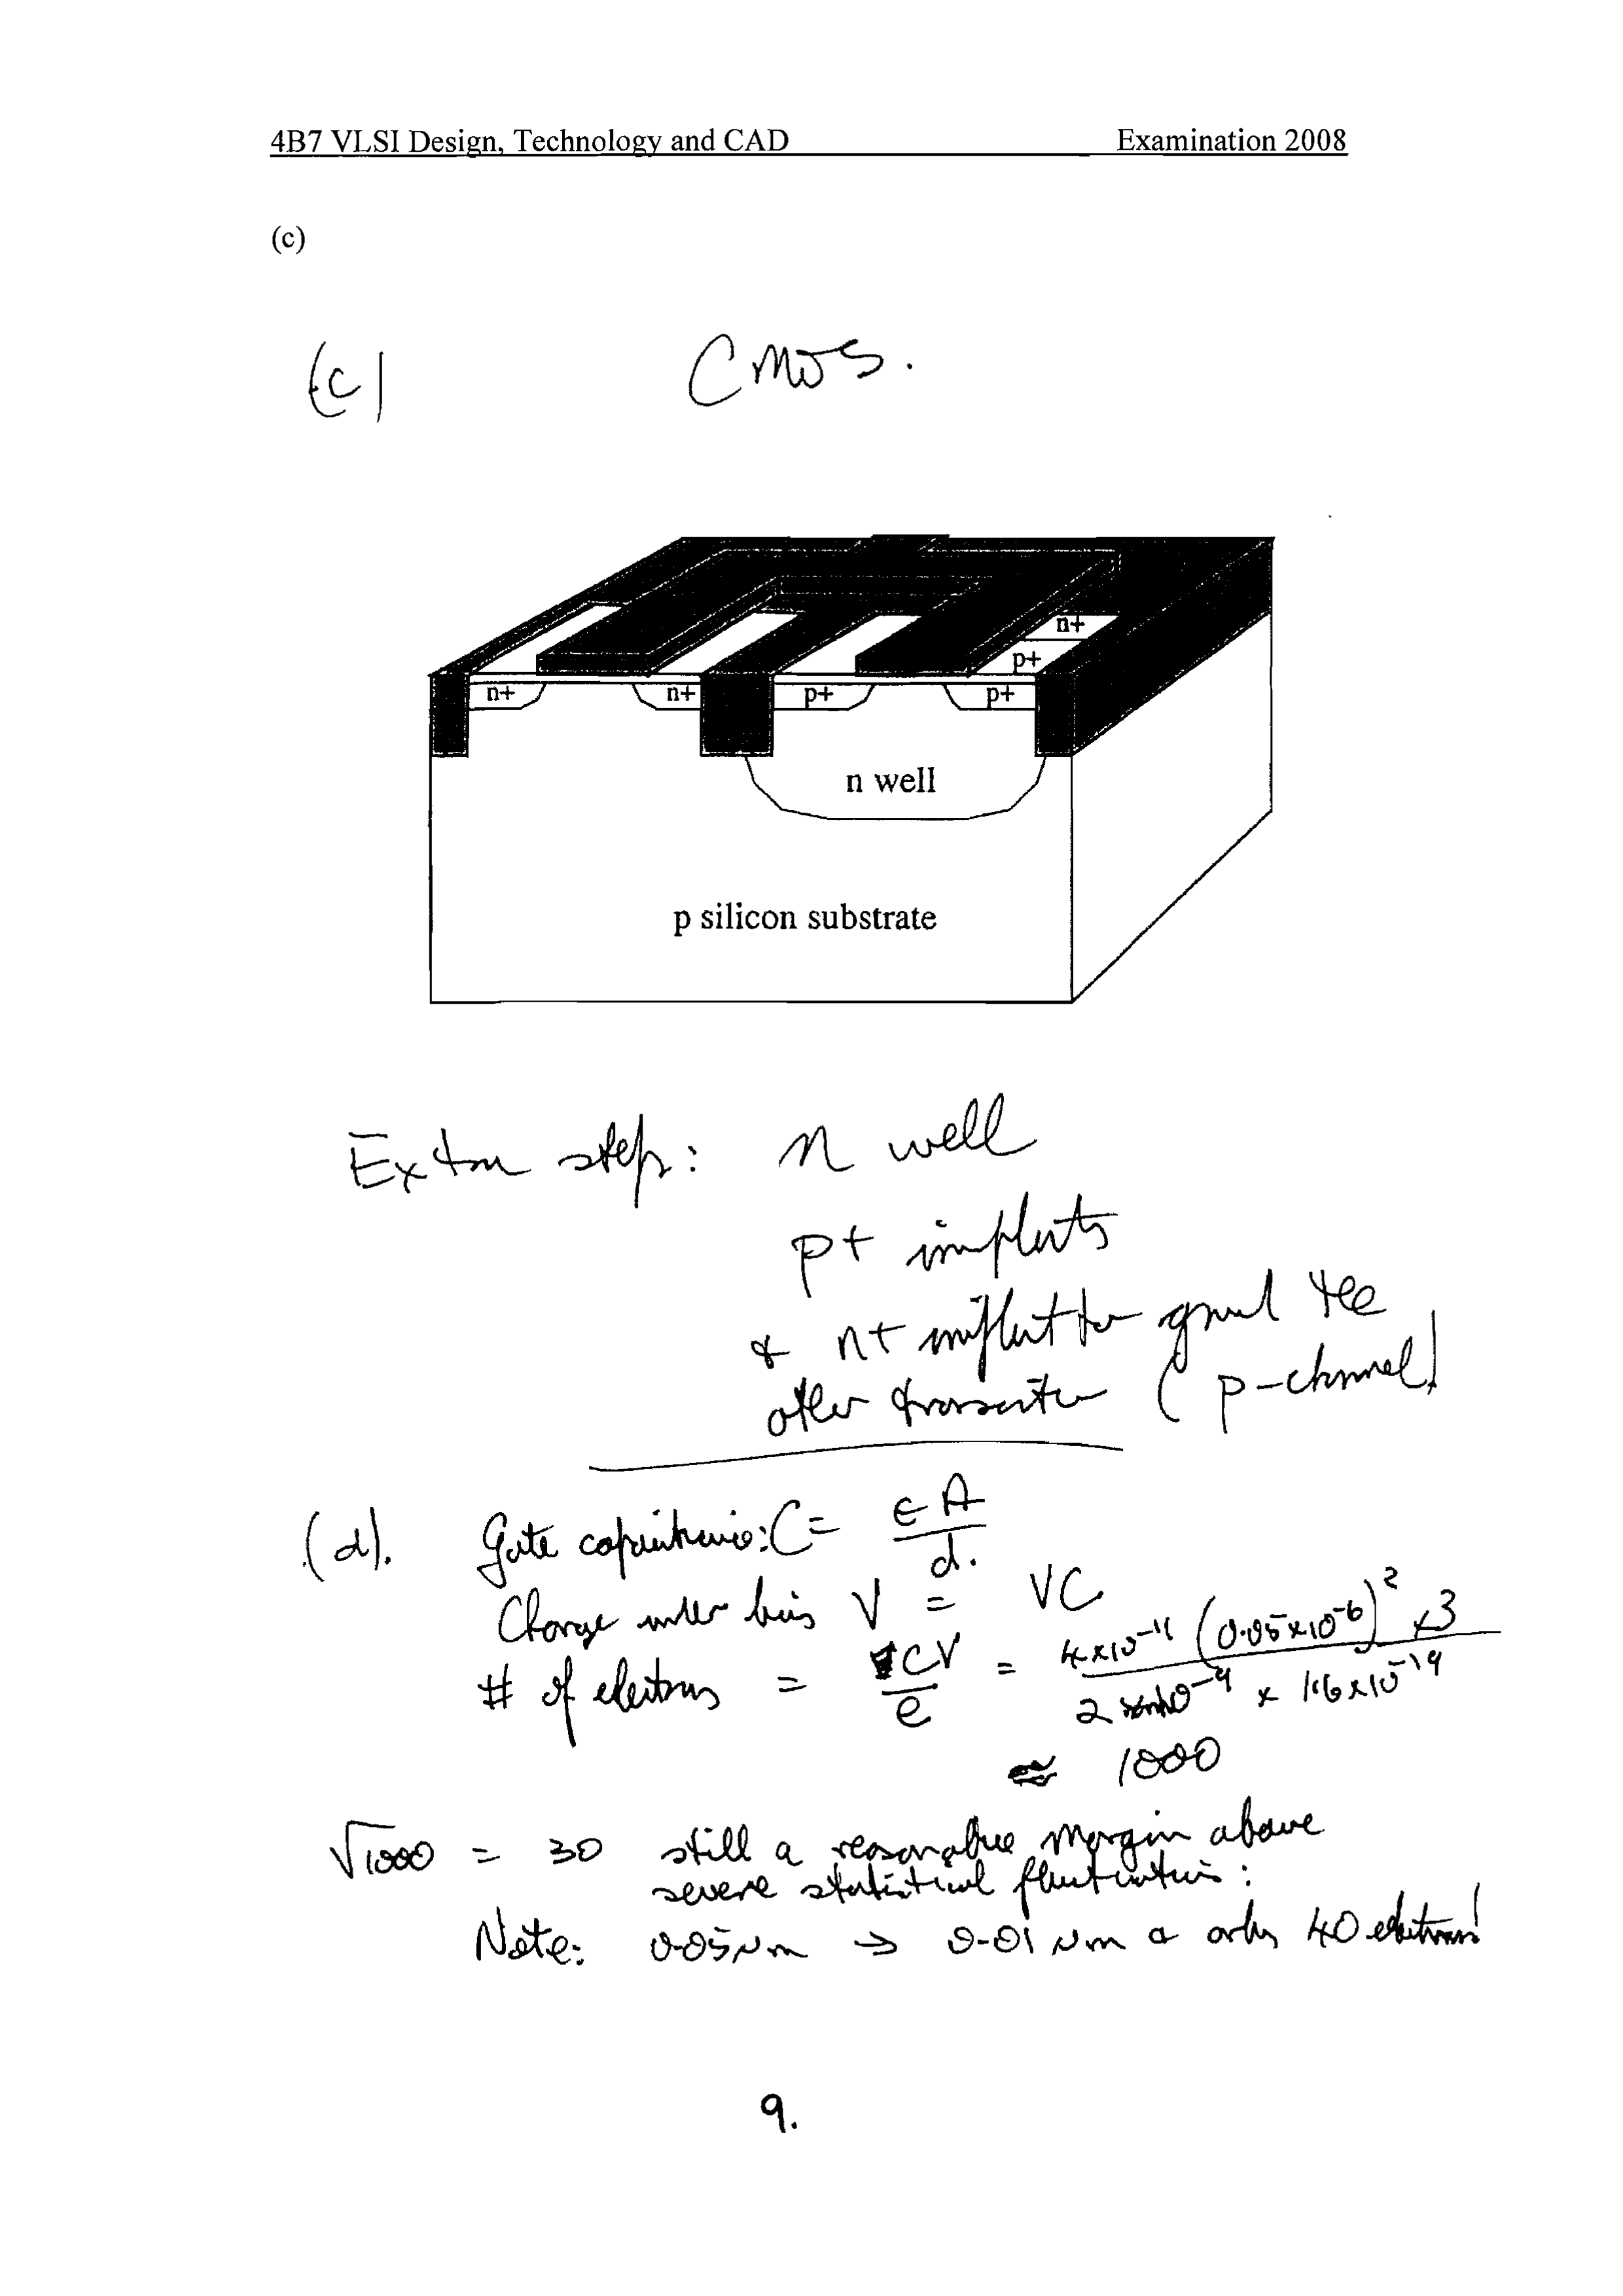 4B7 VLSI Design, Technology and CAD Examination 2008
(c)
(c) CMOS.
n+
p+
n+ n+ p+ p+
n well
p silicon substrate
Extra steps: n well
p+ implants
& n+ implant to guard the
other transistor (p-channel)
(d). Gate capacitance: C = εA/d.
Charge under bias V = VC
# of electrons = CV/e = 4x10⁻¹¹ (0.05x10⁻⁶)² x3 / 2 x10⁻⁹ x 1.6x10⁻¹⁹
≈ 1000
√1000 = 30 still a reasonable margin above
severe statistical fluctuations:
Note: 0.05μm → 0.01μm only 40 electrons!
9.